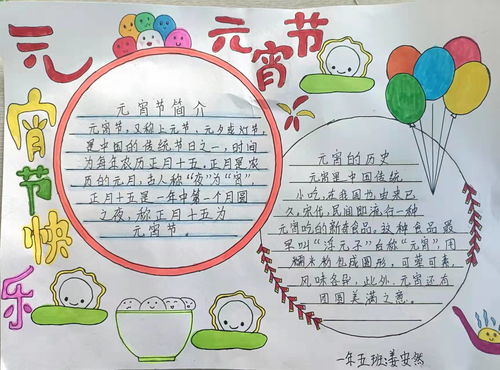 元宵节快乐
元宵节
元宵节简介
元宵节，又称上元节、元夕或灯节，
是中国的传统节日之一，时间
为每年农历正月十五。正月是农
历的元月，古人称“夜”为“宵”，
正月十五是一年中第一个月圆
之夜，称正月十五为
元宵节。
元宵的历史
元宵是中国传统
小吃，在我国也由来已
久，宋代，民间即流行一种
元宵吃的新奇食品。这种食品最
早叫“浮元子”后称“元宵”，用
糯米粉包成圆形，可荤可素，
风味各异，此外，元宵还有
团圆美满之意。
一年五班：姜安然